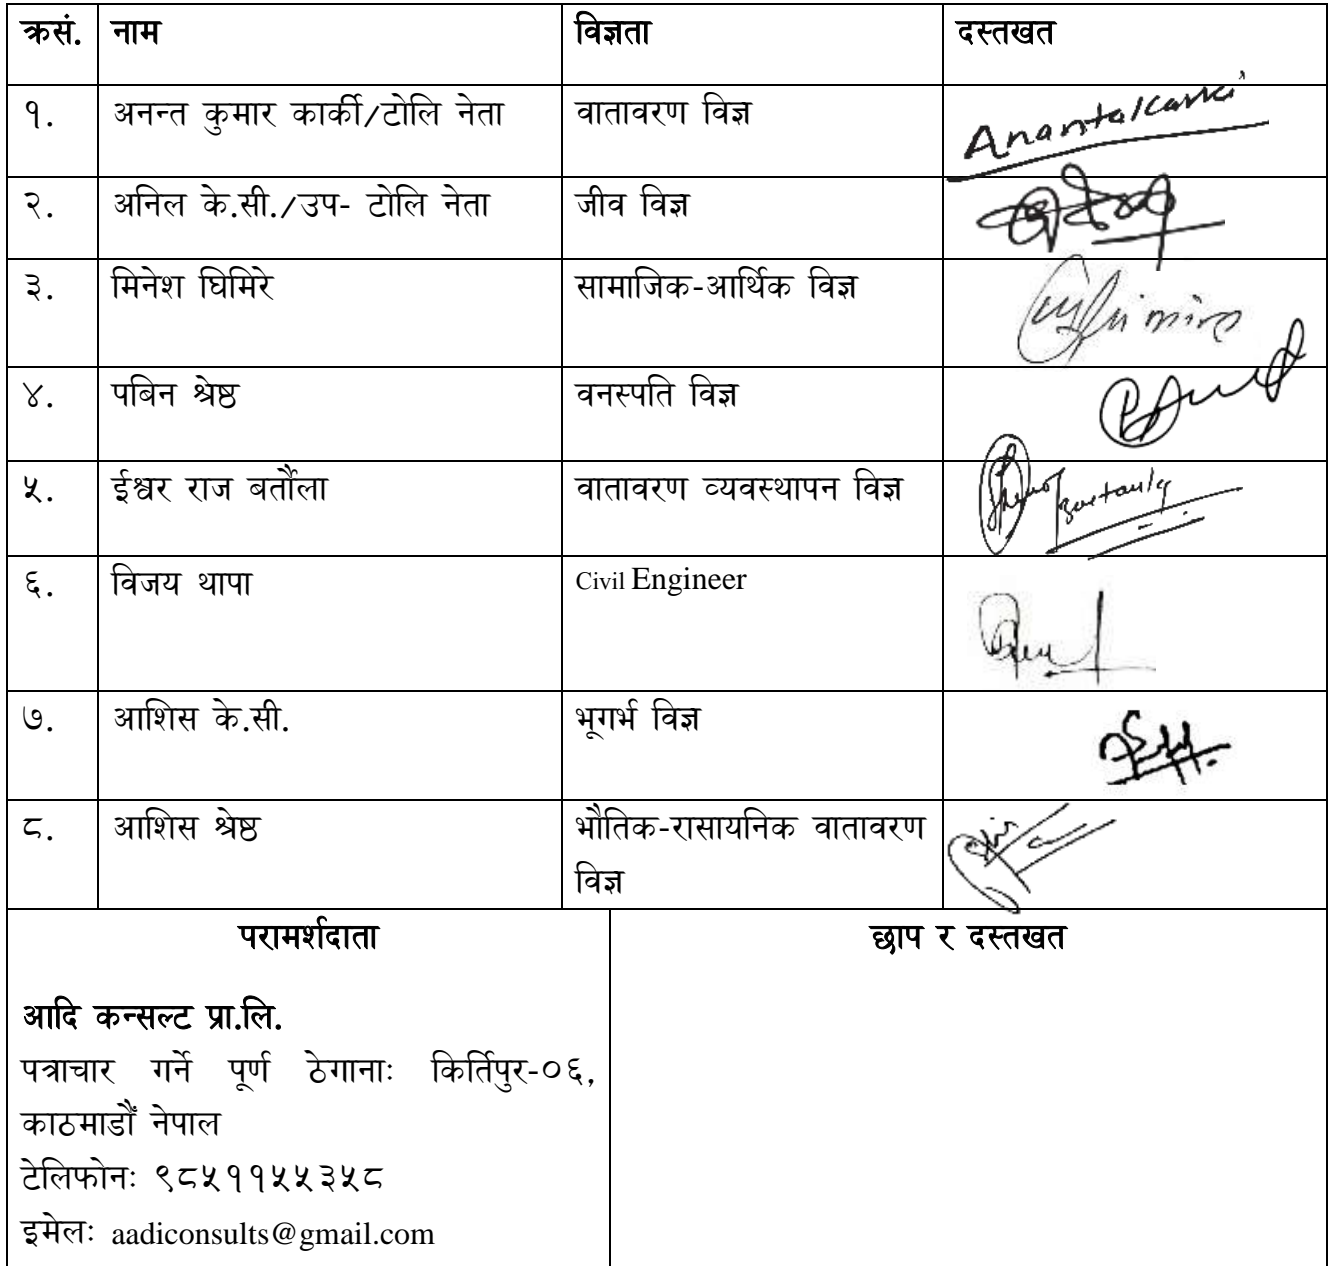 क्रसं. नाम विज्ञता दस्तखत
१. अनन्त कुमार कार्की/टोलि नेता वातावरण विज्ञ AnantaKarki
२. अनिल के.सी./उप- टोलि नेता जीव विज्ञ
३. मिनेश घिमिरे सामाजिक-आर्थिक विज्ञ
४. पबिन श्रेष्ठ वनस्पति विज्ञ
५. ईश्वर राज बर्तौला वातावरण व्यवस्थापन विज्ञ
६. विजय थापा Civil Engineer
७. आशिस के.सी. भूगर्भ विज्ञ
८. आशिस श्रेष्ठ भौतिक-रासायनिक वातावरण
विज्ञ
परामर्शदाता छाप र दस्तखत
आदि कन्सल्ट प्रा.लि.
पत्राचार गर्ने पूर्ण ठेगानाः किर्तिपुर-०६,
काठमाडौँ नेपाल
टेलिफोनः ९८५११५५३५८
इमेलः aadiconsults@gmail.com